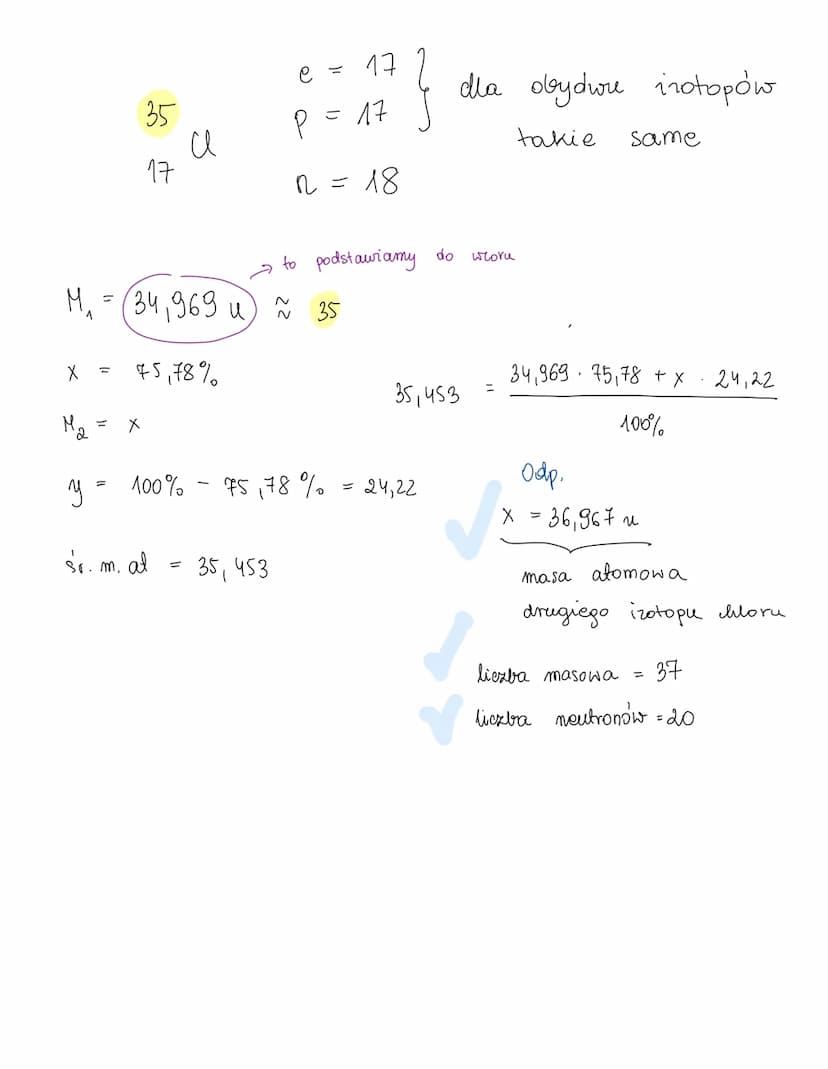 e = 17
p = 17
dla obydwu izotopów
takie same
35
17
Cl
n = 18
→ to podstawiamy do wzoru
M₁ = 34,969 u ≈ 35
x = 75,78%
M₂ = x
y = 100% - 75,78% = 24,22
śr. m. at = 35,453
35,453 = 34,969 · 75,78 + x · 24,22
100%
Odp.
x = 36,967 u
masa atomowa
drugiego izotopu chloru
liczba masowa = 37
liczba neutronów = 20